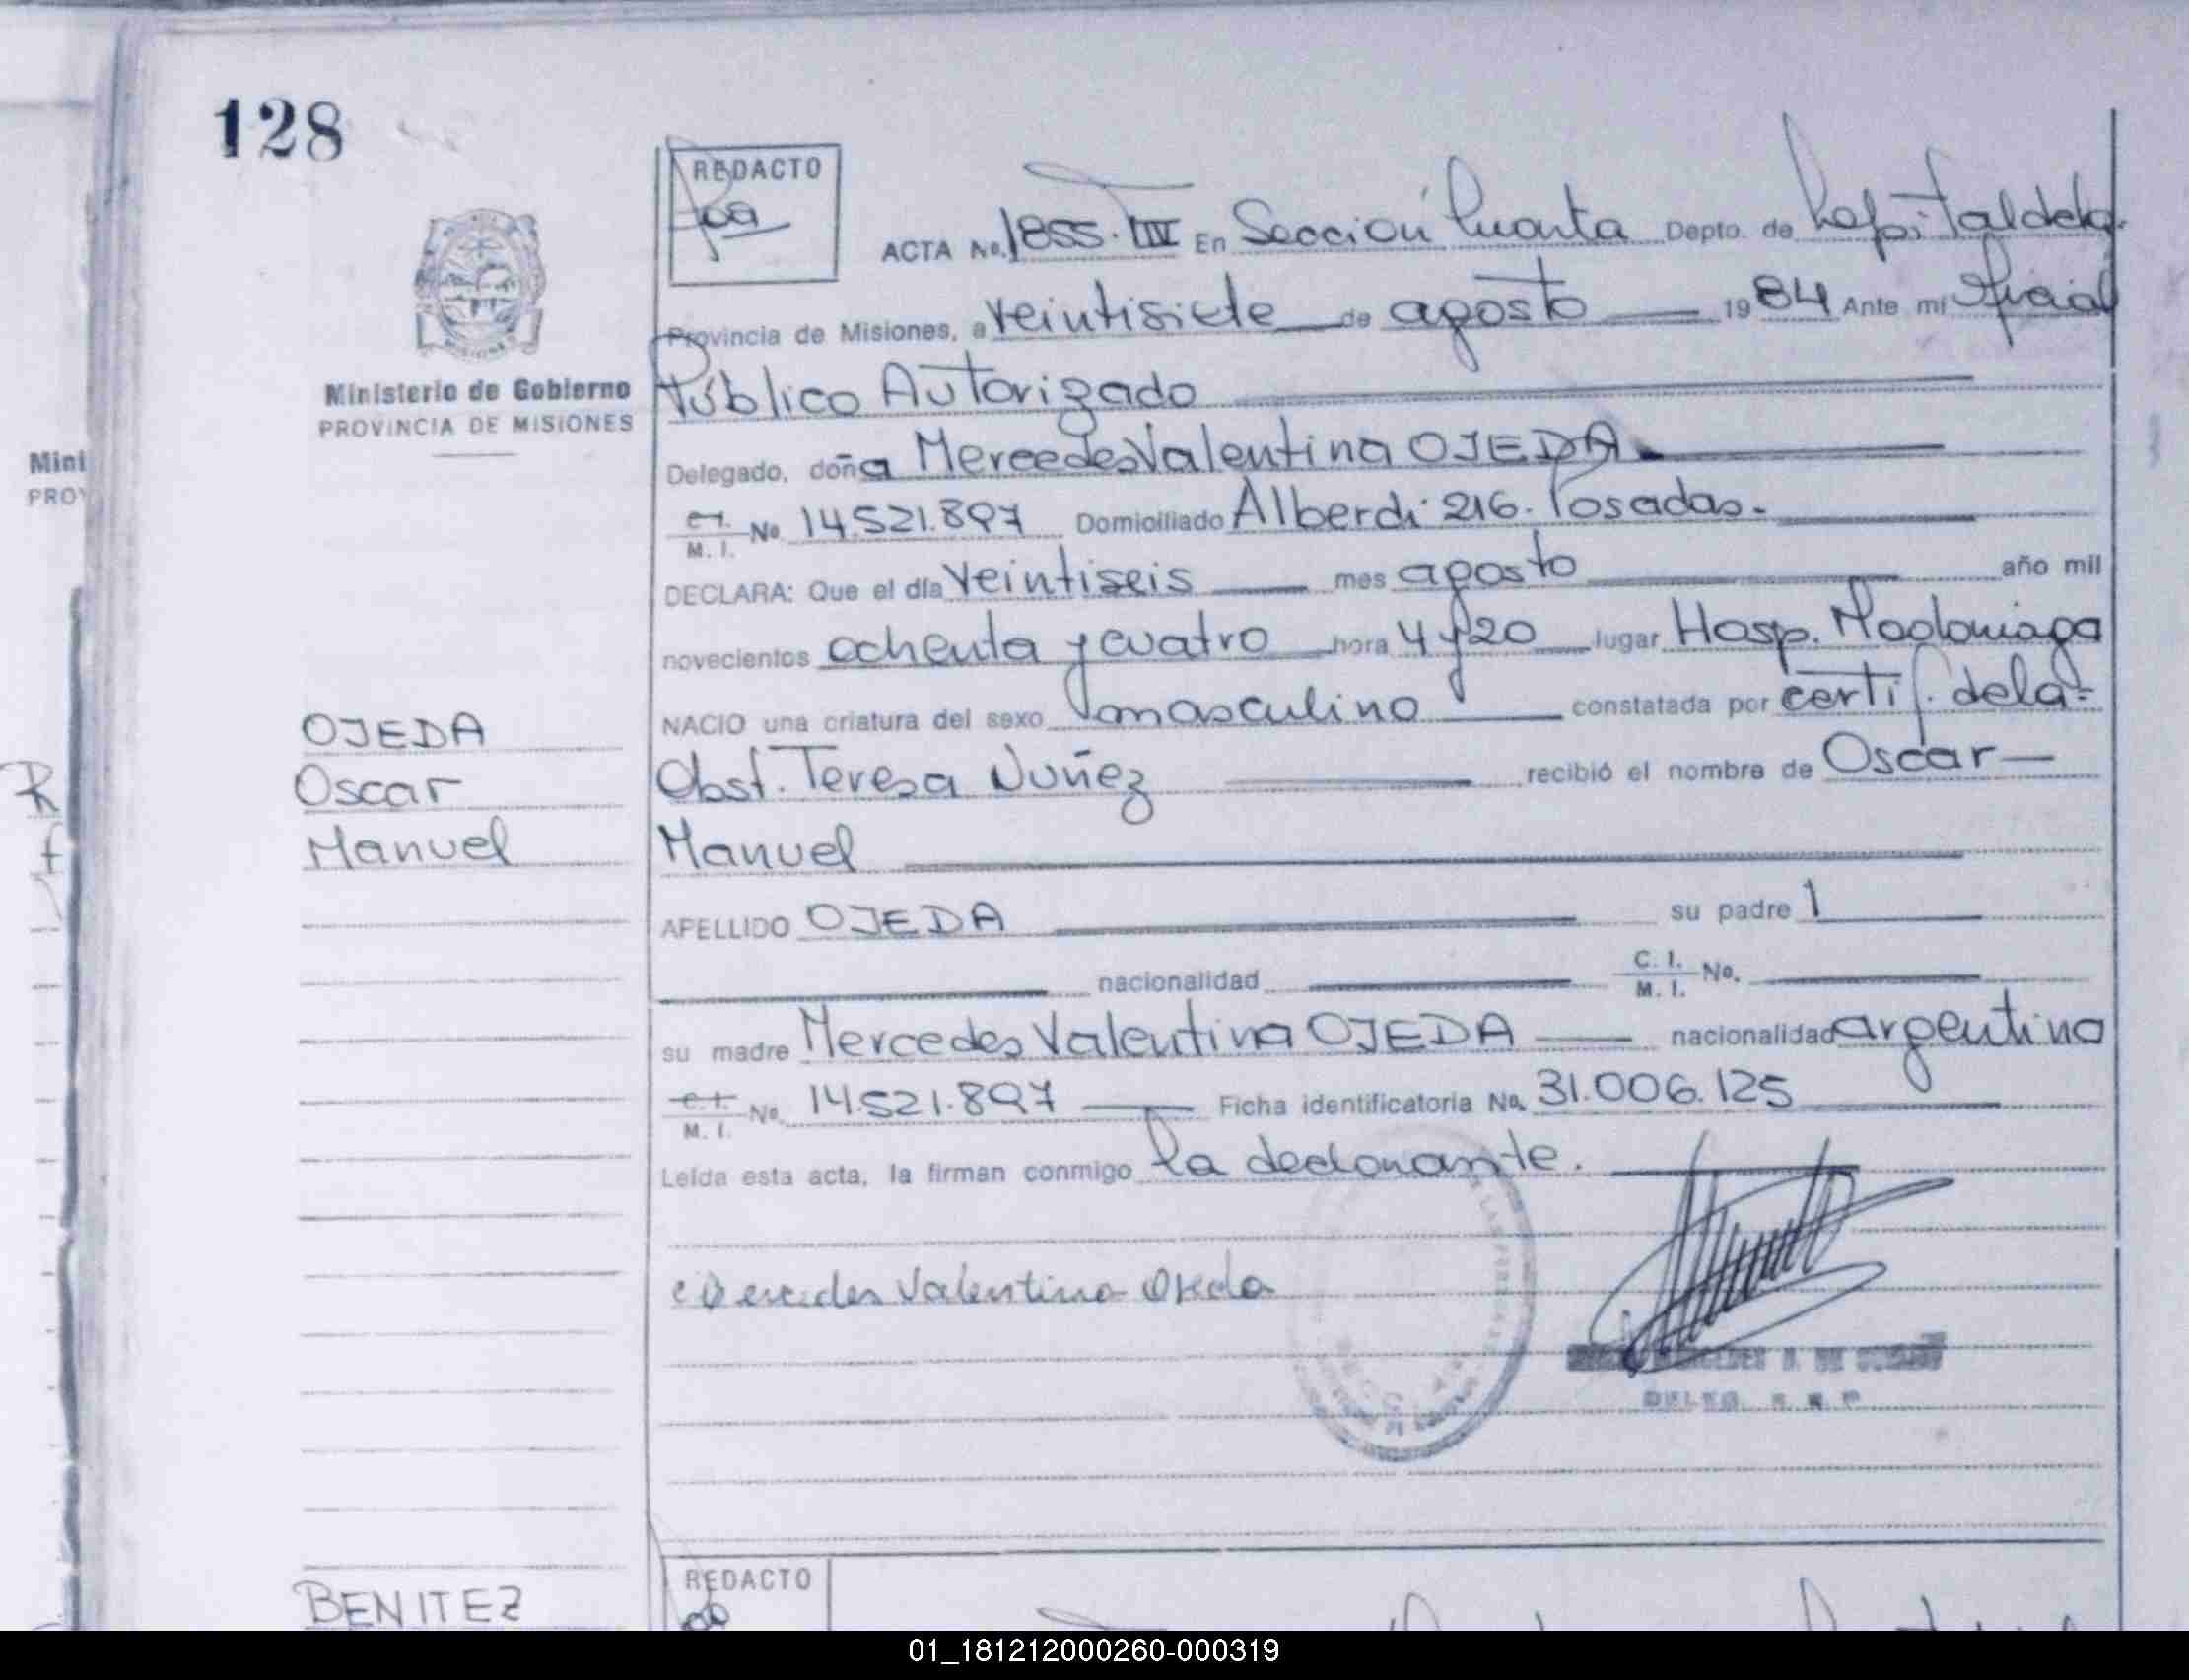 128
REDACTO
ACTA No. 1855. TIV En Sección Cuarta Depto. de Capital dela
Provincia de Misiones, a veintisiete de agosto 1984 Ante mí Oficial
Público Autorizado
Ministerio de Gobierno
PROVINCIA DE MISIONES
Delegado, doña Mercedes Valentina OJEDA
M. I. No 14.521.897 Domiciliado Alberdi 216. Posadas.
Mini
PROV
DECLARA: Que el día veintiseis mes agosto año mil
novecientos ochenta y cuatro hora 4 y 20 lugar Hosp. Madariaga
NACIO una criatura del sexo masculino constatada por certif. dela=
OJEDA
Oscar
Manuel
Obst. Teresa Nuñez recibió el nombre de Oscar—
Manuel
APELLIDO OJEDA su padre
nacionalidad C. I. M. I. No.
su madre Mercedes Valentina OJEDA nacionalidad argentina
C. I. M. I. No. 14.521.897 Ficha identificatoria No. 31.006.125
Leída esta acta, la firman conmigo la declarante.
Mercedes Valentina Ojeda
DELEG.
BENITEZ
REDACTO
01_181212000260-000319